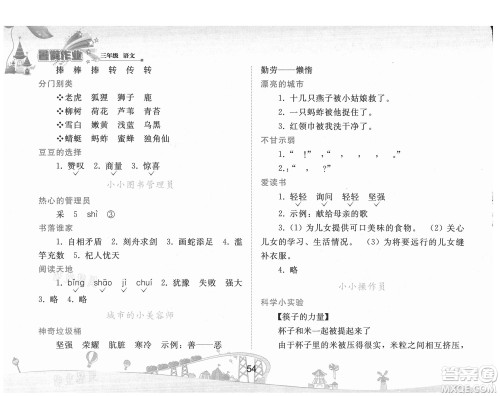 暑假作业 三年级 语文
捧 棒 捧 转 传 转
分门别类
❖老虎 狐狸 狮子 鹿
❖柳树 荷花 芦苇 青苔
❖雪白 嫩黄 浅绿 蓝色
❖蜻蜓 蚂蚁 蜜蜂 独角仙
豆豆的选择
1. 赞叹 2. 商量 3. 惊喜
小小图书管理员
热心的管理员
采 5 shǐ ③
书落谁家
1. 自相矛盾 2. 刻舟求剑 3. 画蛇添足 4. 滥
竽充数 5. 杞人忧天
阅读天地
1. bǐng shāo jì chuí 2. 犹豫 失败 强大
3. 略 4. 略
城市的小美容师
神奇垃圾桶
坚强 荣耀 肮脏 寒冷 示例：善——恶
勤劳——懒惰
漂亮的城市
1. 十几只燕子被小姑娘救了。
2. 杯子被弟弟打碎了。
3. 红领巾被我洗干净了。
不甘示弱
1. “ ”， “ ！” 2. “ ，” ， “ 。”
爱读书
1. 轻轻 询问 轻轻 坚强
2. 示例：献给母亲的歌
3. （1）为儿女提供可口美味的食物。（2）关心
儿女的学习、生活等。（3）将要远行的儿女缝
补衣服。
4. 略
小小操作员
科学小实验
【筷子的力量】
杯子和米一起被提起来了。
因为杯子里的米被压得很紧，米粒之间相互挤压，
54
答案圈